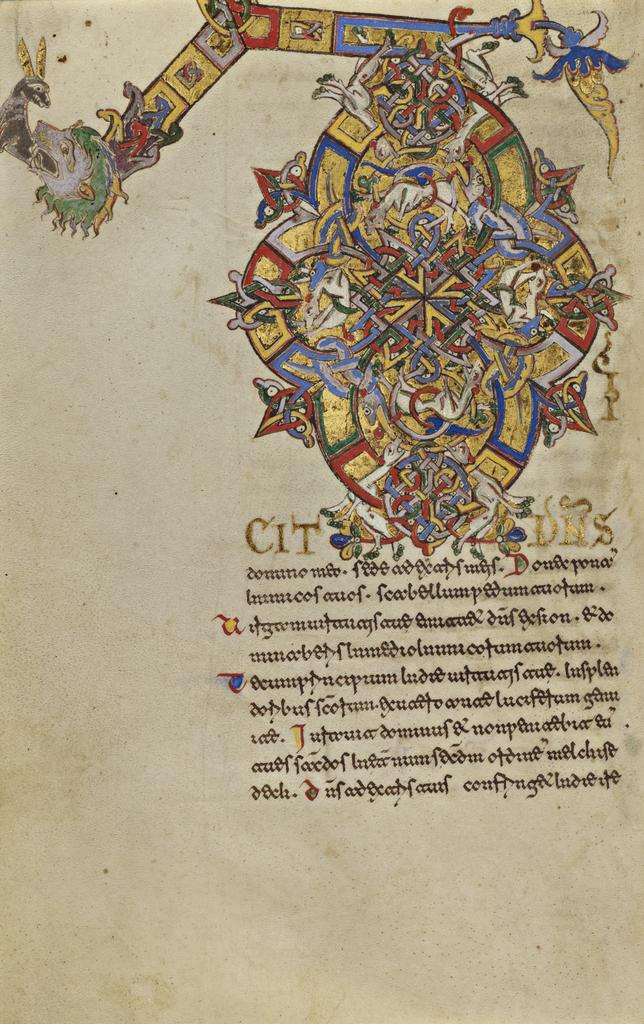 CIT DN̄S
domino meo. sede a dextris meis. Donec ponā
Inimicos tuos. scabellum pedum tuorum.
Uirgam uirtutis tue emittet dn̄s exsion. & do
minabitis Inmedio Inimicorum tuorum.
Tecum principium Indie uirtutis tue. Insplen
doribus scōrum. exutero ante luciferum genu
i te. Iurauit dominus & non penitebit eū.
tu es sacdos Inet̄num secd̄m ordinē melchise
dech. Dn̄s a dextris tuis confringet Indie ire